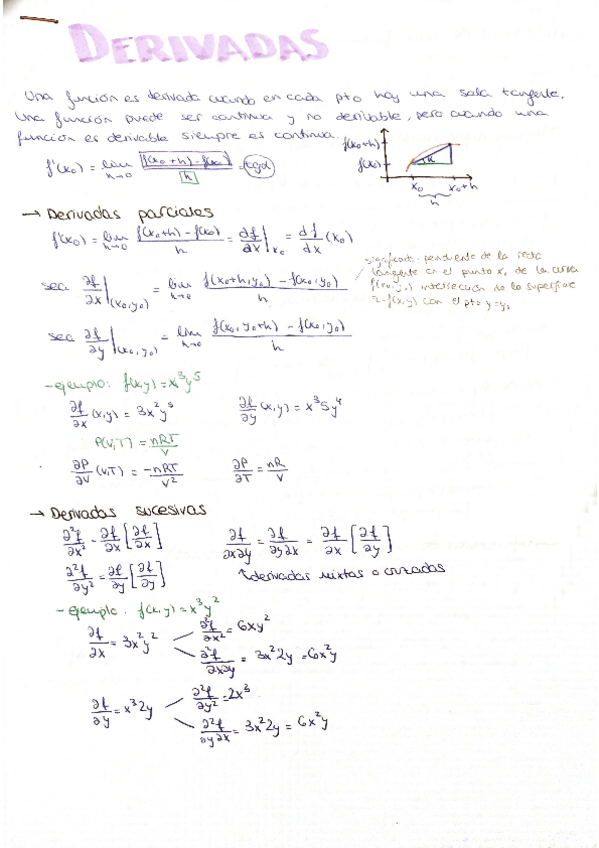 DERIVADAS
Una función es derivada cuando en cada pto hay una sola tangente.
Una función puede ser continua y no derivable, pero cuando una
función es derivable siempre es continua.
f'(x₀) = lim h→0 [f(x₀+h) - f(x₀)] / h = tgα
f(x₀+h)
f(x₀)
α
x₀ x₀+h
h
→ Derivadas parciales
f'(x₀) = lim h→0 (f(x₀+h) - f(x₀)) / h = df/dx |x₀ = df/dx (x₀)
sea ∂f/∂x |(x₀,y₀) = lim h→0 (f(x₀+h,y₀) - f(x₀,y₀)) / h
significado: pendiente de la recta
tangente en el punto x₀ de la curva
f(x₀,y₀) intersección de la superficie
z=f(x,y) con el pto y=y₀
sea ∂f/∂y |(x₀,y₀) = lim h→0 (f(x₀,y₀+h) - f(x₀,y₀)) / h
- ejemplo: f(x,y) = x³y⁵
∂f/∂x (x,y) = 3x²y⁵ ∂f/∂y (x,y) = x³5y⁴
P(V,T) = nRT/V
∂P/∂V (V,T) = -nRT/V² ∂P/∂T = nR/V
→ Derivadas sucesivas
∂²f/∂x² = ∂f/∂x [∂f/∂x] ∂f/∂x∂y = ∂f/∂y∂x = ∂f/∂x [∂f/∂y]
∂²f/∂y² = ∂f/∂y [∂f/∂y] ↑derivadas mixtas o cruzadas
- ejemplo: f(x,y) = x³y²
∂f/∂x = 3x²y² ∂²f/∂x² = 6xy²
∂²f/∂x∂y = 3x²2y = 6x²y
∂f/∂y = x³2y ∂²f/∂y² = 2x³
∂²f/∂y∂x = 3x²2y = 6x²y